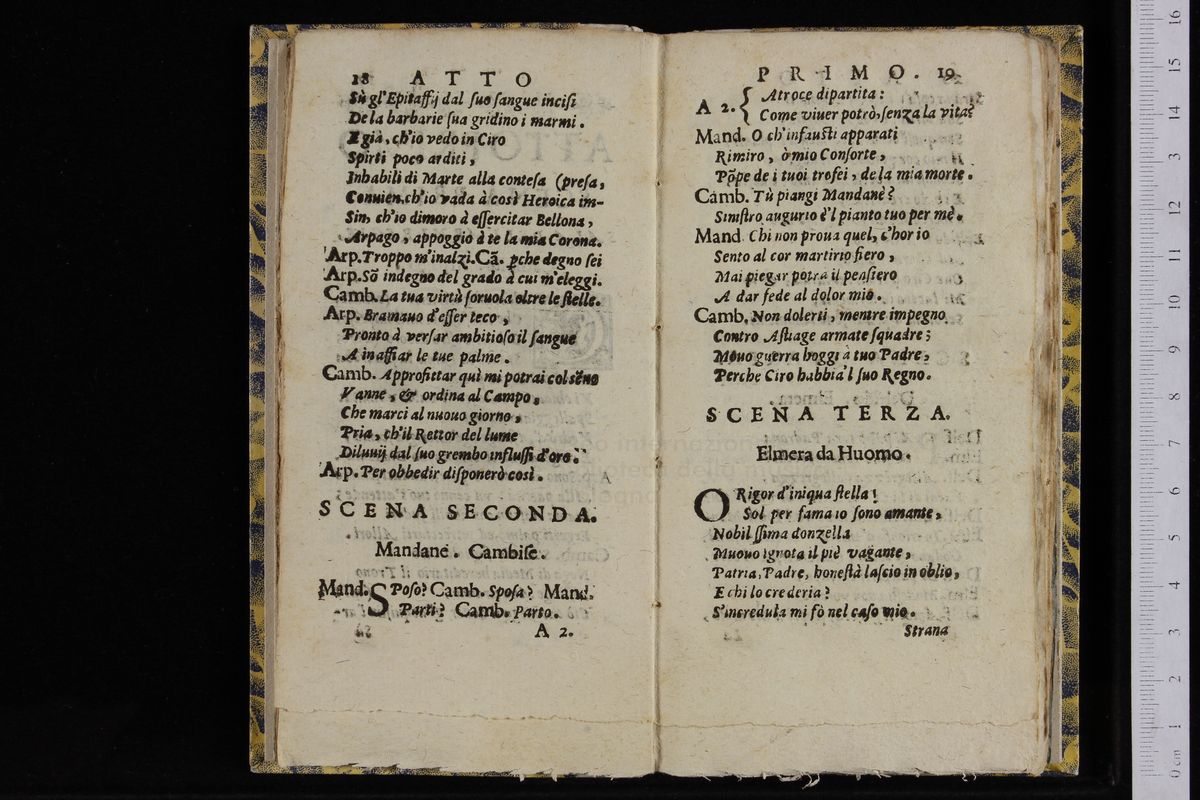 18 ATTO
Sù gl'Epitaffij dal suo sangue incisi
De la barbarie sua gridino i marmi.
E già, ch'io vedo in Ciro
Spirti poco arditi,
Inhabili di Marte alla contesa (presa,
Conuien, ch'io vada à così Heroica im-
Sin, ch'io dimoro à essercitar Bellona,
Arpago, appoggio à te la mia Corona.
Arp. Troppo m'inalzi. Cã. pche degno sei
Arp. Sõ indegno del grado à cui m'eleggi.
Camb. La tua virtù soruola oltre le stelle.
Arp. Bramauo d'esser teco,
Pronto à versar ambitioso il sangue
A inaffiar le tue palme.
Camb. Approfittar quì mi potrai col sẽno
Vanne, & ordina al Campo,
Che marci al nuouo giorno,
Pria, ch'il Rettor del lume
Diluuij dal suo grembo influssi d'oro.
Arp. Per obbedir disponerò così.
SCENA SECONDA.
Mandane. Cambise.
Mand. SPoso? Camb. Sposa? Mand.
Parti? Camb. Parto.
A 2.
PRIMO. 19
A 2. { Atroce dipartita:
Come viuer potrò, senza la vita?
Mand. O ch'infausti apparati
Rimiro, ò mio Consorte,
Põpe de i tuoi trofei, de la mia morte.
Camb. Tù piangi Mandane?
Sinistro augurio è'l pianto tuo per mè.
Mand. Chi non proua quel, c'hor io
Sento al cor martirio fiero,
Mai piegar potrà il pensiero
A dar fede al dolor mio.
Camb. Non dolerti, mentre impegno
Contro Astiage armate squadre;
Mouo guerra hoggi à tuo Padre,
Perche Ciro habbia'l suo Regno.
SCENA TERZA.
Elmera da Huomo.
O Rigor d'iniqua stella!
Sol per fama io sono amante,
Nobilissima donzella
Muouo ignota il piè vagante,
Patria, Padre, honestà lascio in oblio,
E chi lo crederia?
S'incredula mi fò nel caso mio.
Strana